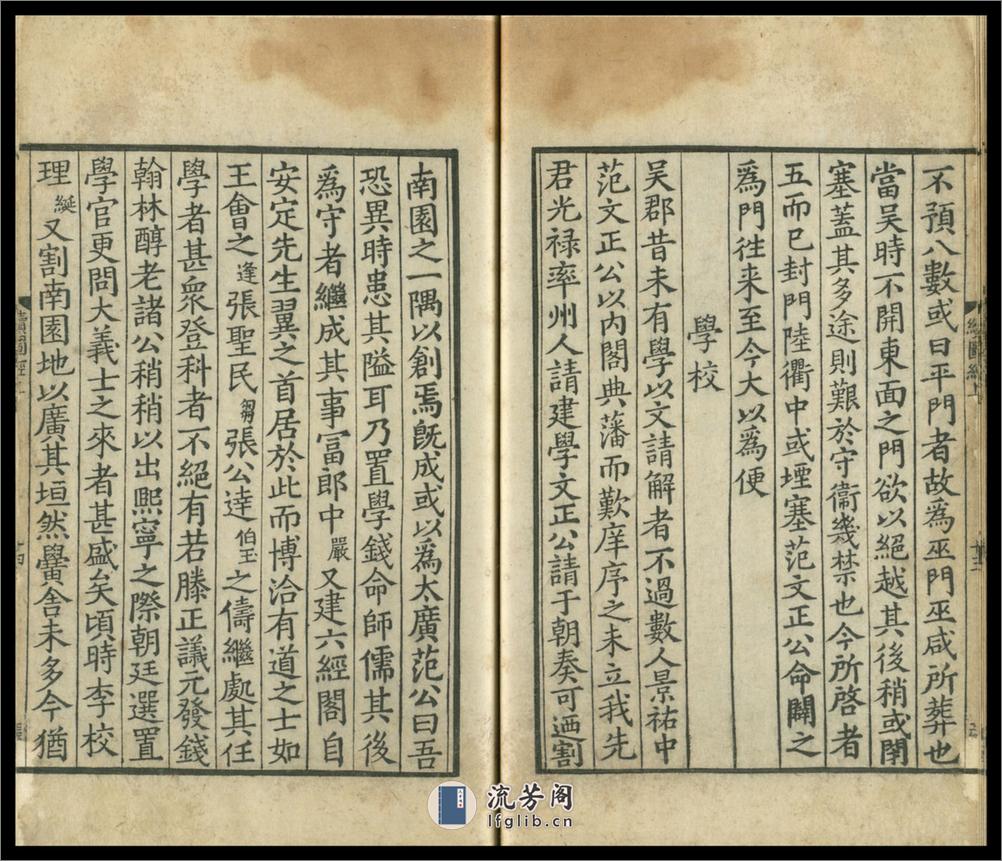 不預八數或曰平門者故為巫門巫咸所葬也
當吳時不開東面之門欲以絕越其後稍或閉
塞蓋其多途則艱於守衞幾禁也今所啓者
五而已封門陸衢中或堙塞范文正公命闢之
為門徃来至今大以為便
學校
吳郡昔未有學以文請解者不過數人景祐中
范文正公以内閣典藩而歎庠序之未立我先
君光禄率州人請建學文正公請于朝奏可迺割
南園之一隅以創焉旣成或以為太廣范公曰吾
恐異時患其隘耳乃置學錢命師儒其後
為守者繼成其事冨郎中嚴又建六經閣自
安定先生翼之首居於此而博洽有道之士如
王會之逢張聖民芻張公逹伯玉之儔繼處其任
學者甚衆登科者不絕有若滕正議元發錢
翰林醇老諸公稍稍以出熙寧之際朝廷選置
學官更問大義士之來者甚盛矣頃時李校
理綖又割南園地以廣其垣然黌舍未多今猶
流芳阁
lfglib.cn